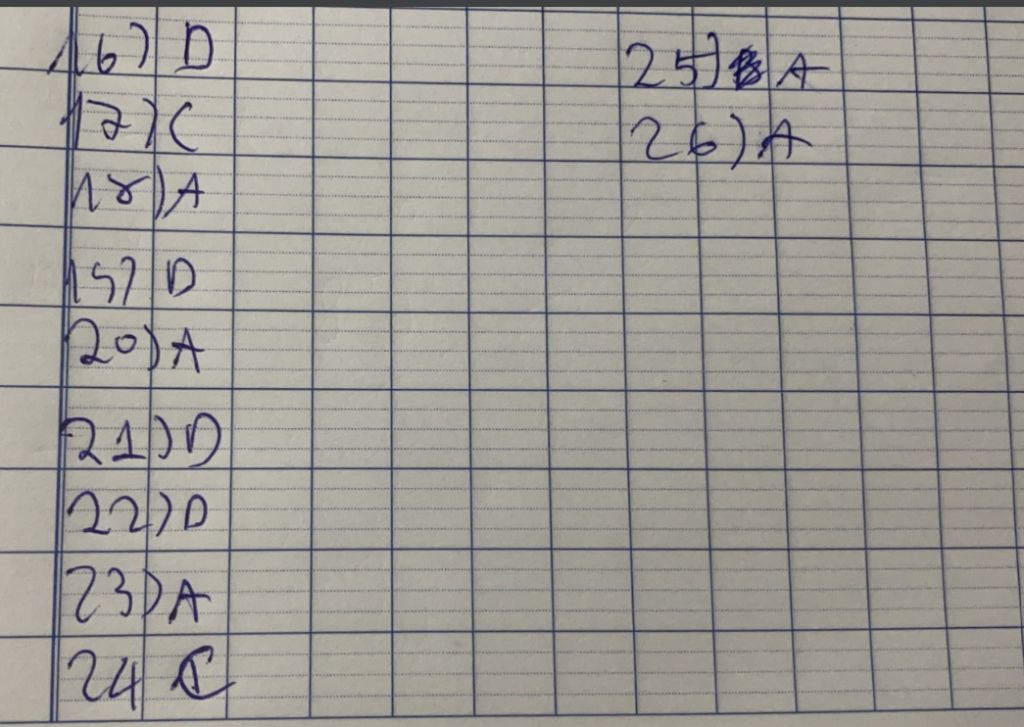 16) D
17) C
18) A
19) D
20) A
21) D
22) D
23) A
24 C
25) A
26) A